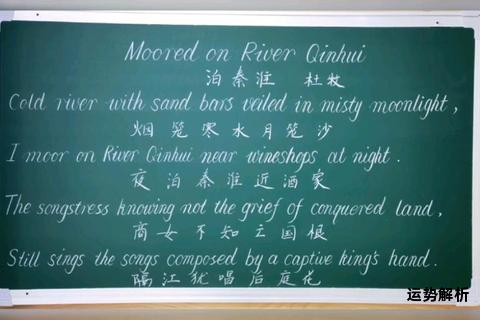 Moored on River Qinhui
泊秦淮 杜牧
Cold river with sand bars veiled in misty moonlight,
烟笼寒水月笼沙
I moor on River Qinhui near wineshops at night.
夜泊秦淮近酒家
The songstress knowing not the grief of conquered land,
商女不知亡国恨
Still sings the songs composed by a captive king's hand.
隔江犹唱后庭花
运势解析